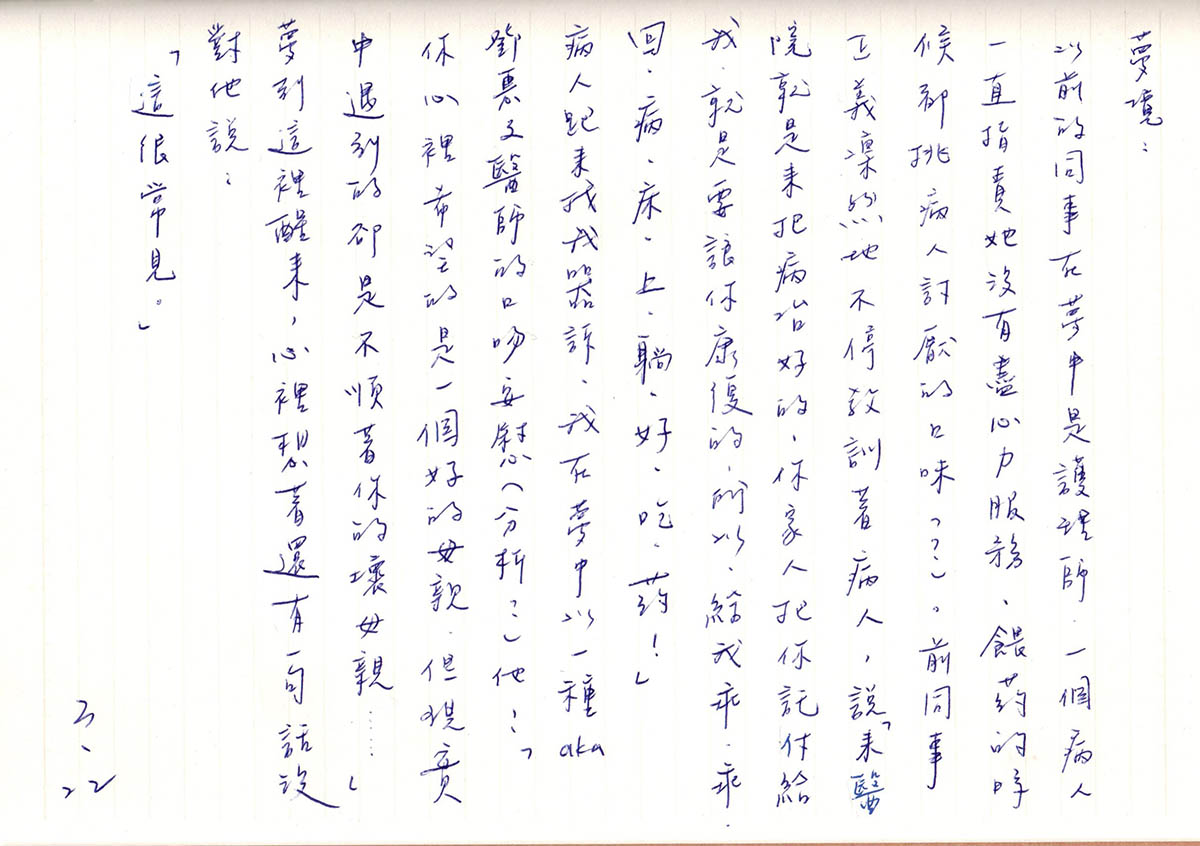 夢境：
以前的同事在夢中是護理師．一個病人
一直指責她沒有盡心力服務、餵药的時
候都挑病人討厭的口味（？）。前同事
正義凜然地不停教訓著病人，說「來醫
院就是來把病治好的，你家人把你託付給
我．就是要讓你康復的．所以．給我乖．乖．
回．病．床．上．躺．好．吃．药！」
病人跑來找我哭訴、我在夢中以一種aka
鄧惠文醫師的口吻安慰（分析？）他：「
你心裡希望的是一個好的母親．但現實
中遇到的卻是不順著你的壞母親……」
夢到這裡醒來，心裡想著還有一句話沒
對他說：
「這很常見。」
3、22